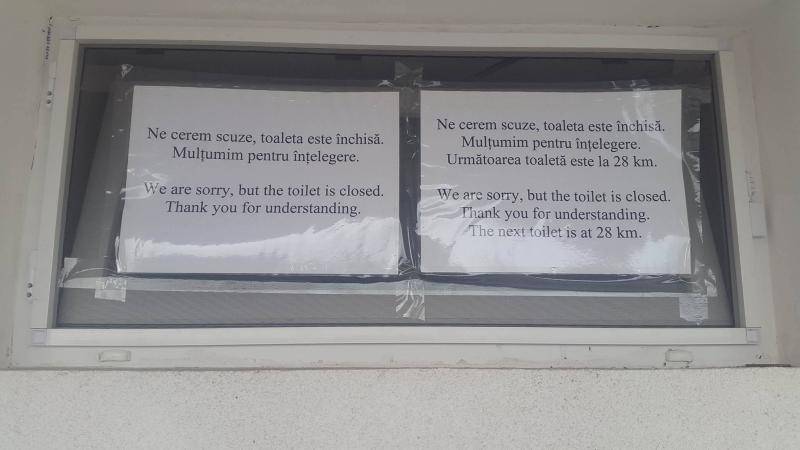 Ne cerem scuze, toaleta este închisă.
Mulțumim pentru înțelegere.
We are sorry, but the toilet is closed.
Thank you for understanding.
Ne cerem scuze, toaleta este închisă.
Mulțumim pentru înțelegere.
Următoarea toaletă este la 28 km.
We are sorry, but the toilet is closed.
Thank you for understanding.
The next toilet is at 28 km.